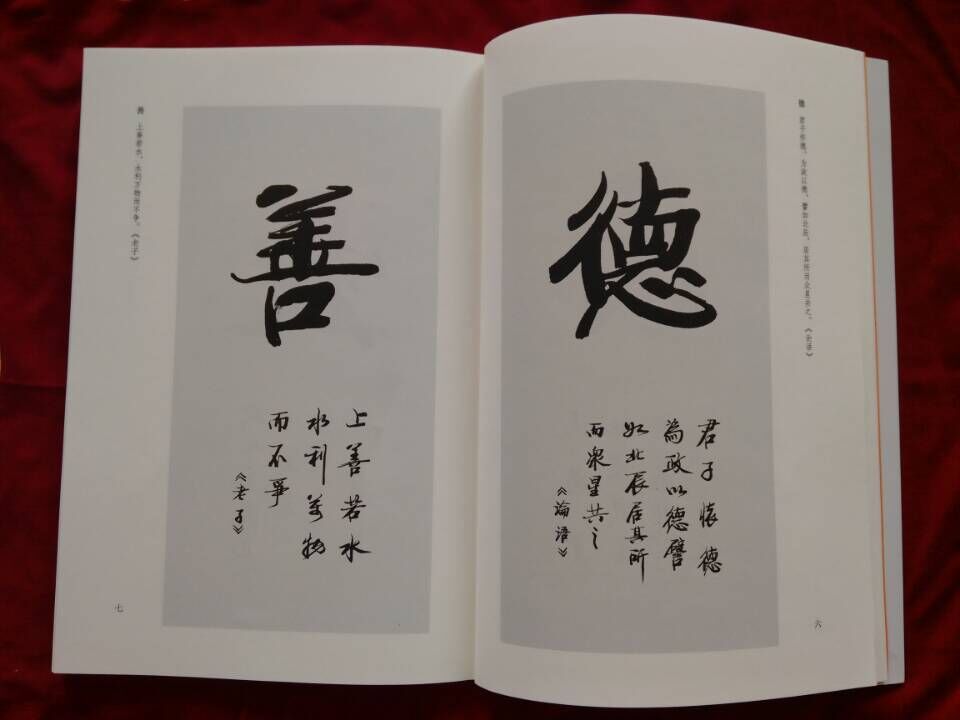 德 君子怀德。为政以德，譬如北辰，居其所而众星共之。《论语》
德
君子懷德
為政以德譬
如北辰居其所
而眾星共之
《論語》
六
善 上善若水，水利万物而不争。《老子》
善
上善若水
水利萬物
而不爭
《老子》
七